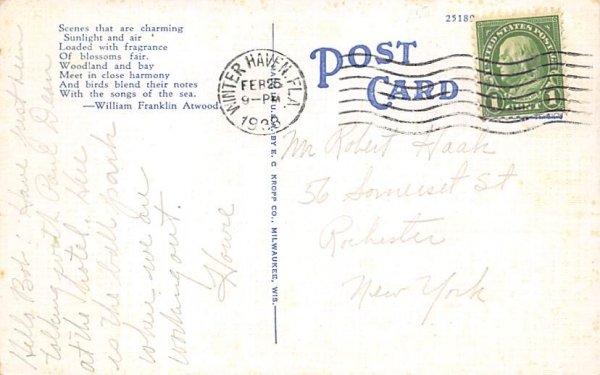 Scenes that are charming
Sunlight and air
Loaded with fragrance
Of blossoms fair.
Woodland and bay
Meet in close harmony
And birds blend their notes
With the songs of the sea.
—William Franklin Atwood
25189
POST
CARD
WINTER HAVEN, FLA.
FEB 25
9-PM
UNITED STATES POSTAGE
1 CENT 1
BY E. C. KROPP CO., MILWAUKEE, WIS.
Mr Robert Haak
56 Somerset St
Rochester
New York
Hello Bob: Have
talking with Paul
at the hotel. Here
is the ball park
where we are
working out.
Howe